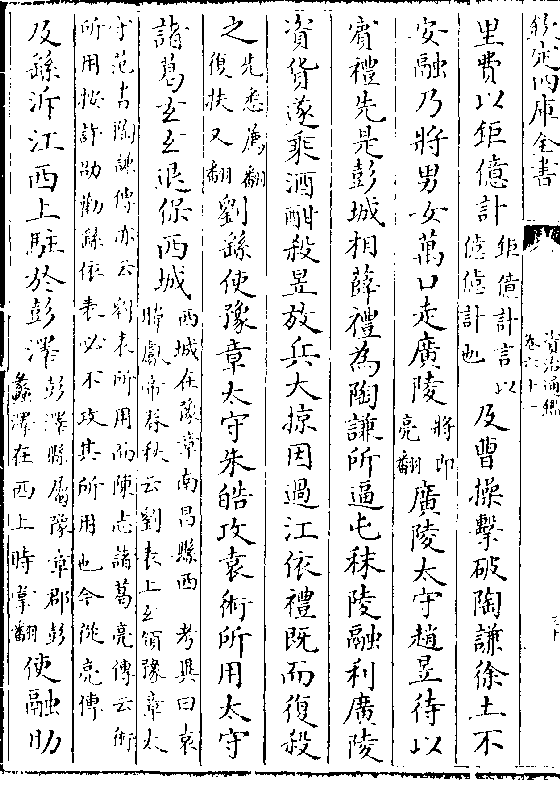 欽定四庫全書
資治通鑑
卷六十一
里費以鉅億計鉅億計言以億億計也及曹操擊破陶謙徐土不
安融乃將男女萬口走廣陵將即亮翻廣陵太守趙昱待以
賓禮先是彭城相薛禮為陶謙所逼屯秣陵融利廣陵
資貨遂乘酒酣殺昱放兵大掠因過江依禮既而復殺
之先悉薦翻復扶又翻劉繇使豫章太守朱皓攻袁術所用太守
諸葛玄玄退保西城西城在豫章南昌縣西考異曰袁暐獻帝春秋云劉表上玄領豫章太
守范書陶謙傳亦云劉表所用而陳志諸葛亮傳云術所用按許劭勸繇依表必不攻其所用也今從亮傳
及繇泝江西上駐於彭澤彭澤縣屬豫章郡彭蠡澤在西上時掌翻使融助